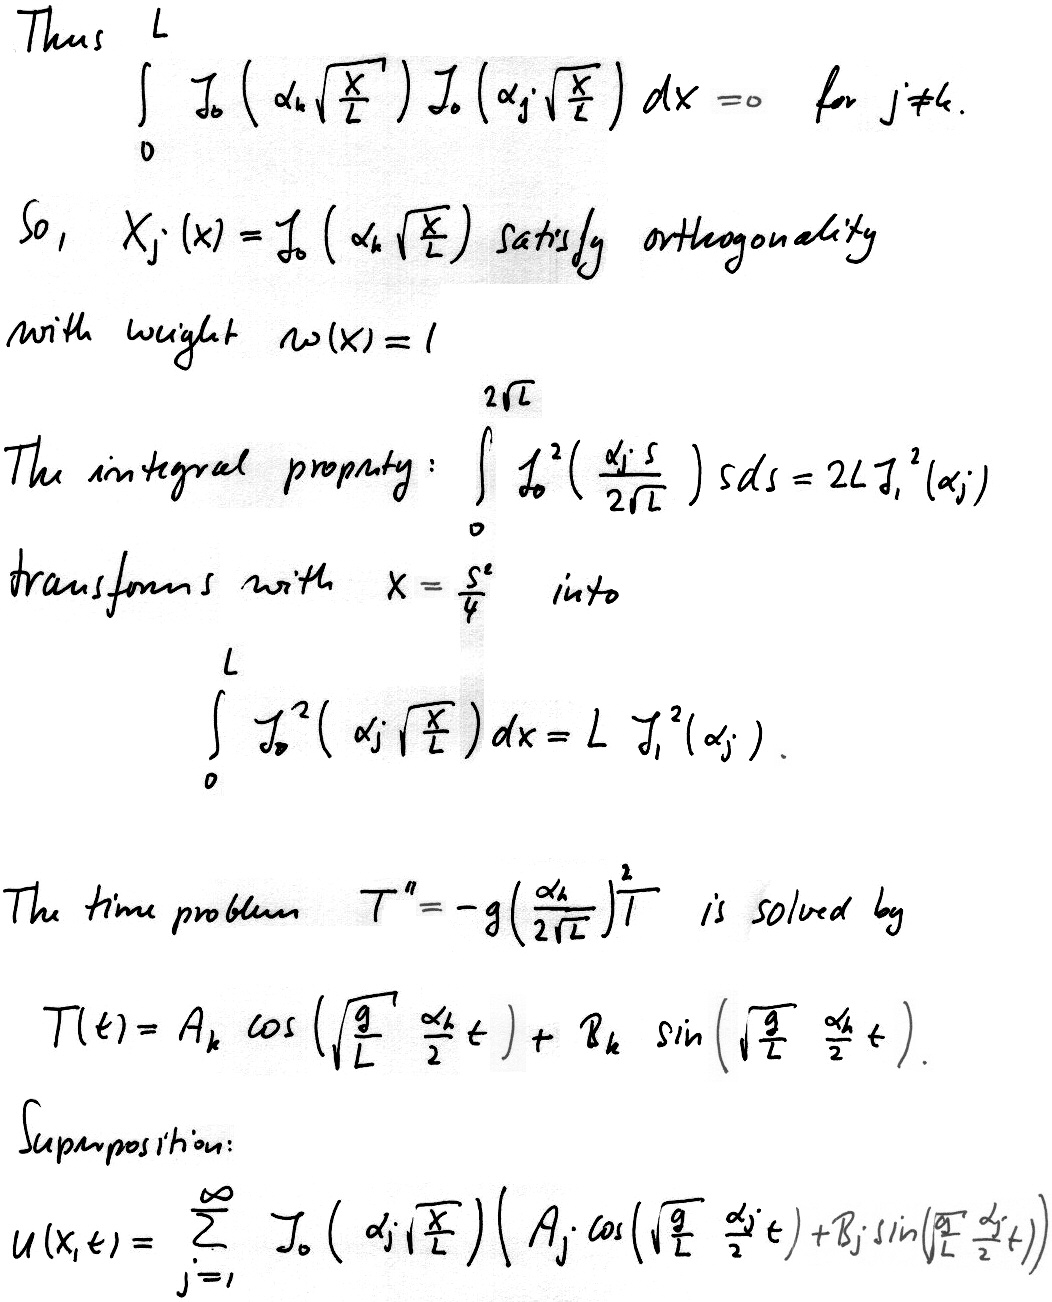 Thus
∫₀ᴸ J₀(αₖ√(x/L)) J₀(αⱼ√(x/L)) dx = 0 for j≠k.
So, Xⱼ(x) = J₀(αₖ√(x/L)) satisfy orthogonality
with weight w(x) = 1
The integral property: ∫₀^(2√L) J₀²(αⱼs/(2√L)) s ds = 2L J₁²(αⱼ)
transforms with x = s²/4 into
∫₀ᴸ J₀²(αⱼ√(x/L)) dx = L J₁²(αⱼ).
The time problem T" = -g(αₖ/(2√L))² T is solved by
T(t) = Aₖ cos(√(g/L) αₖ/2 t) + Bₖ sin(√(g/L) αₖ/2 t).
Superposition:
u(x,t) = ∑_(j=1)^∞ J₀(αⱼ√(x/L)) (Aⱼ cos(√(g/L) αⱼ/2 t) + Bⱼ sin(√(g/L) αⱼ/2 t))